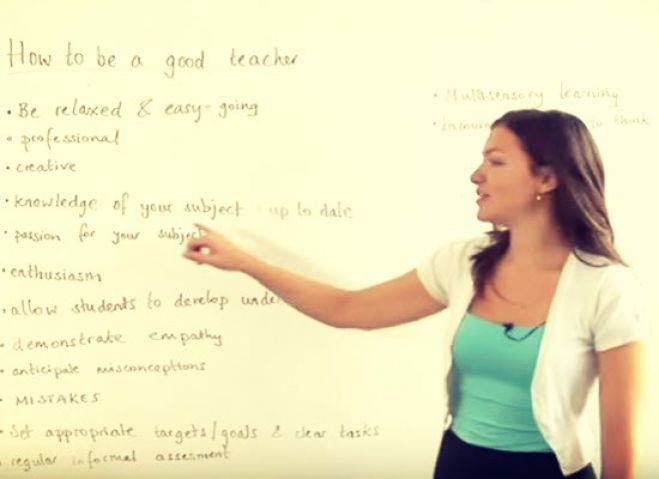 How to be a good teacher
• Be relaxed & easy-going
• professional
• creative
• knowledge of your subject up to date
• passion for your subject
• enthusiasm
• allow students to develop
• demonstrate empathy
• anticipate misconceptions
• MISTAKES
• Set appropriate targets/goals & clear tasks
• regular informal assesment
• Multisensory learning
• to think